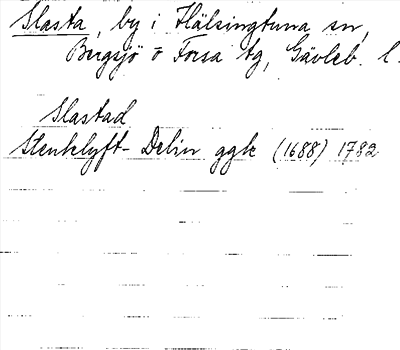 Slasta, by i Hälsingtuna sn,
Bergsjö o Forsa tg, Gävleb. l.
Slastad
Stenklyft-Delin ggk (1688) 1782